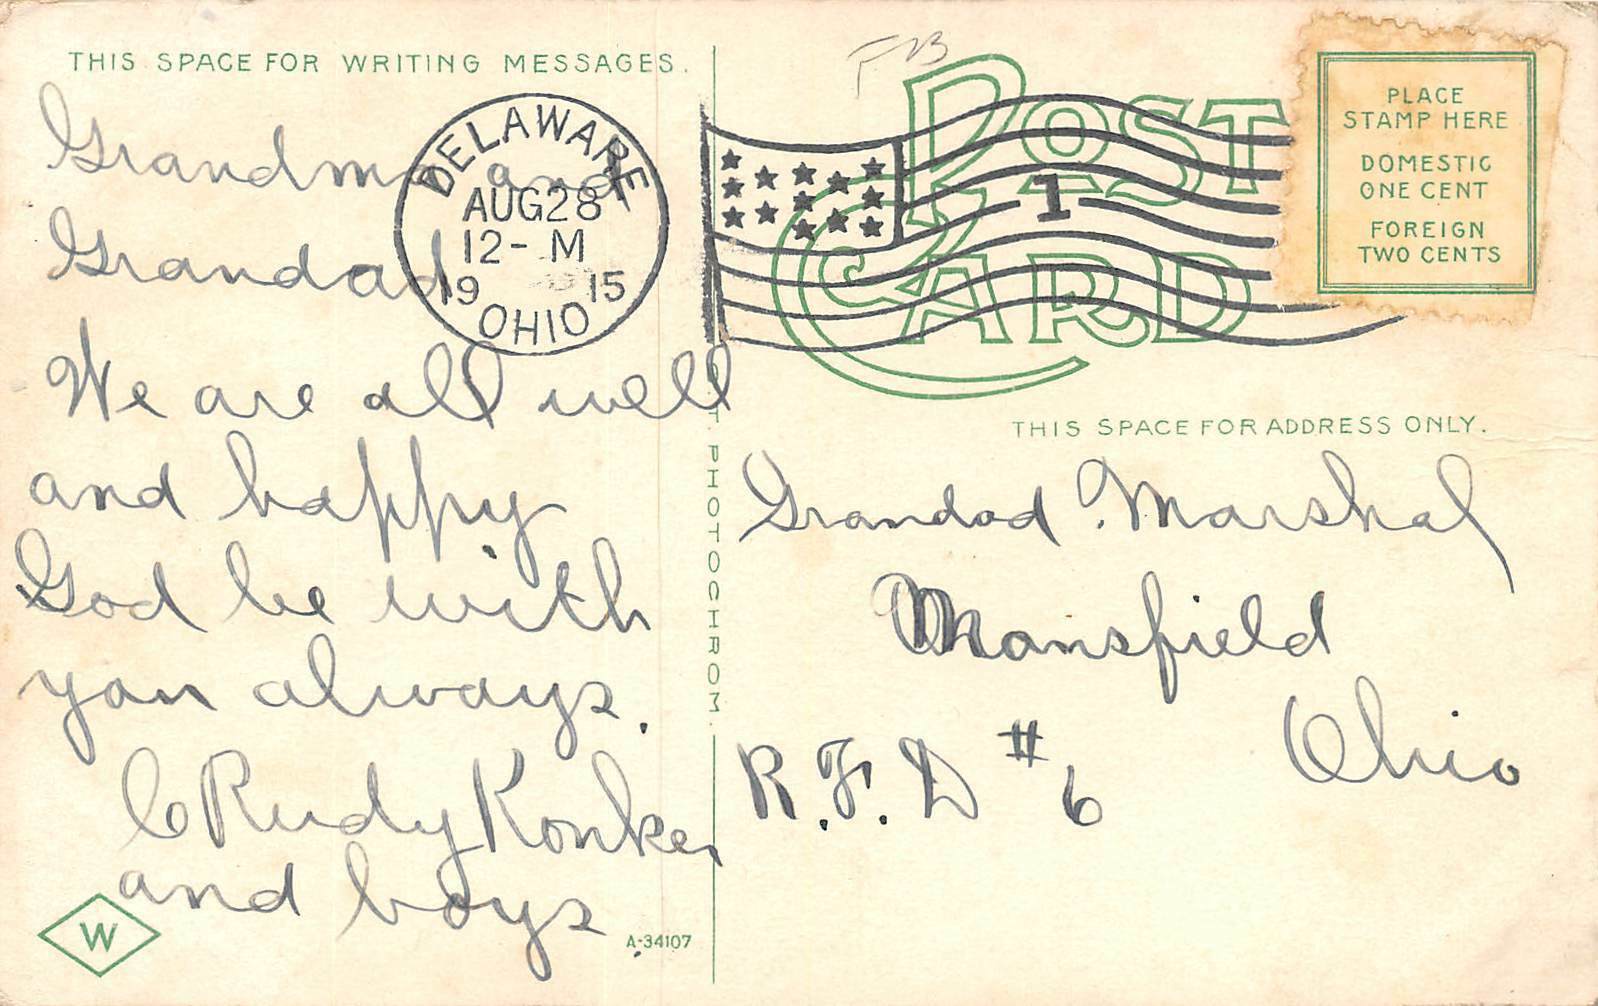 THIS SPACE FOR WRITING MESSAGES.
Grandma and
Grandad
We are all well
and happy
God be with
you always.
C Rudy Konker
and boys
W
A-34107
DELAWARE
AUG 28
12- M
19 15
OHIO
1
POST
CARD
PLACE
STAMP HERE
DOMESTIC
ONE CENT
FOREIGN
TWO CENTS
PHOTOCHROM.
THIS SPACE FOR ADDRESS ONLY.
Grandad Marshal
Mansfield
Ohio
R.F.D #6